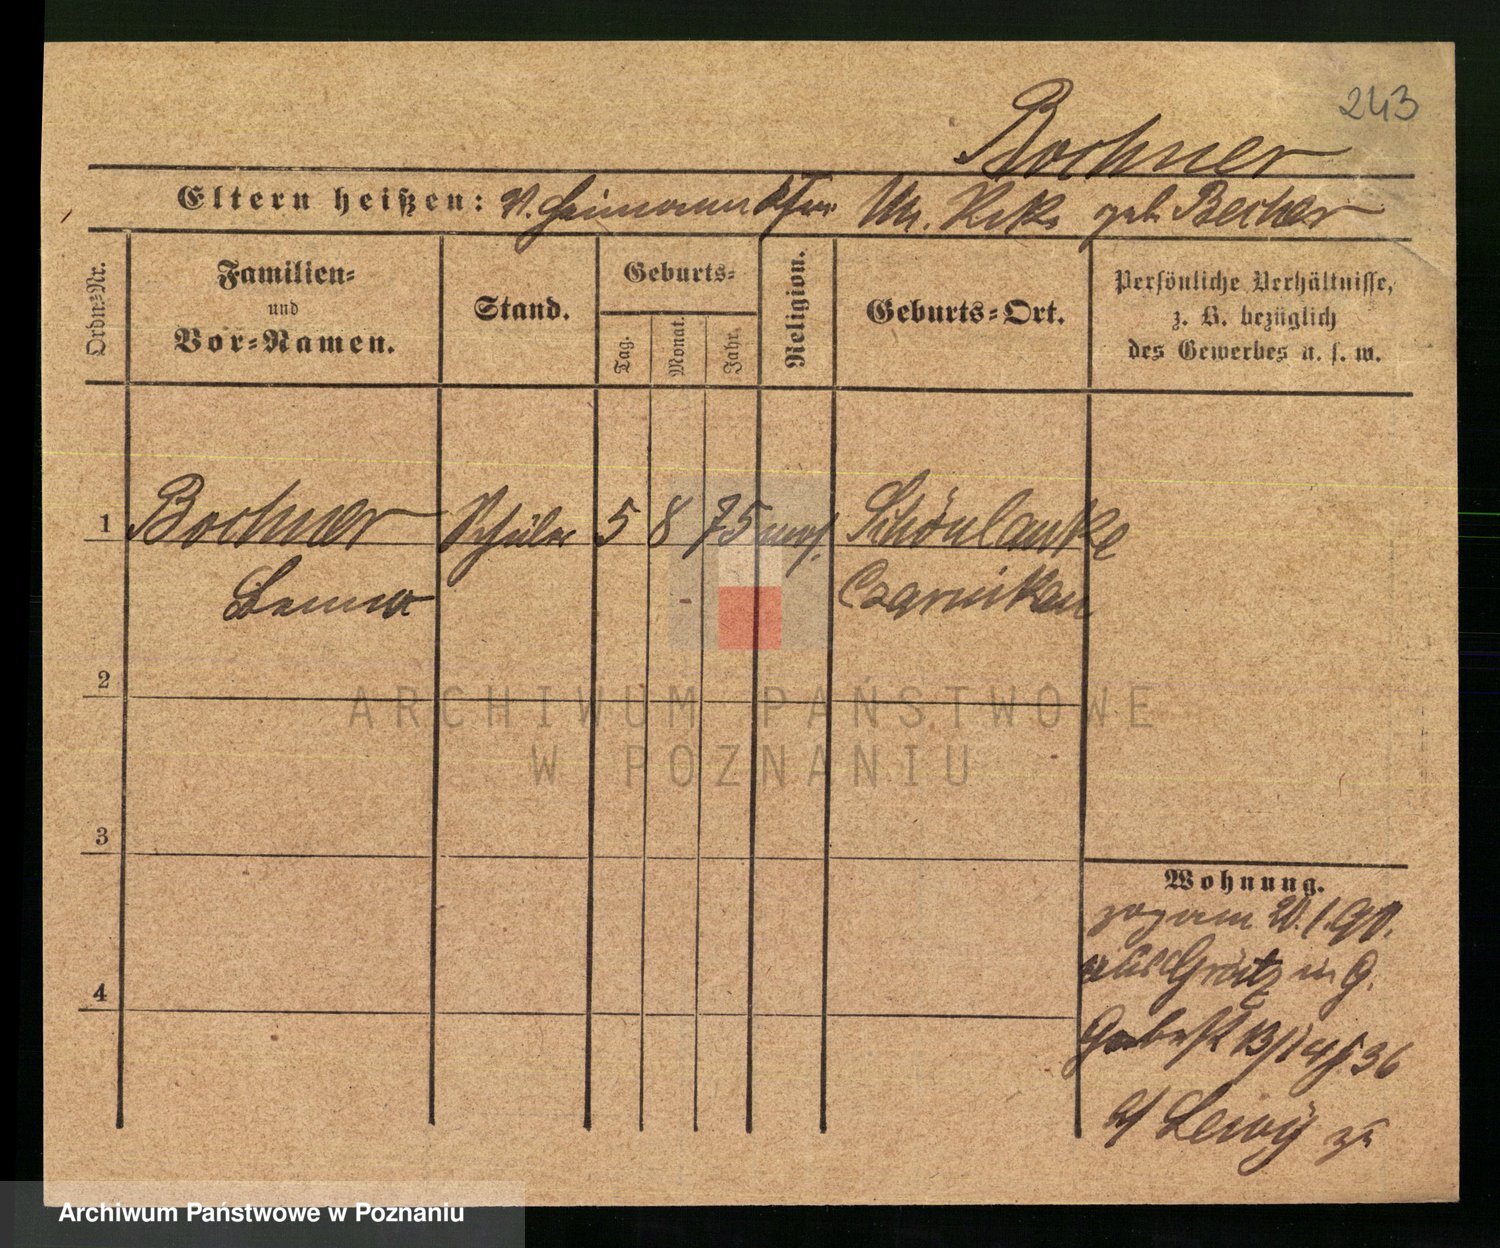 243
Bochner
Eltern heißen: V. Heimann M. geb. Becher
Ordn.-Nr.
Familien-
und
Vor-Namen.
Stand.
Geburts-
Tag.
Monat.
Jahr.
Religion.
Geburts-Ort.
Persönliche Verhältnisse,
z. B. bezüglich
des Gewerbes u. s. w.
1 Bochner Schüler 5 8 75 mos. Schönlanke
Benno Czarnikau
2
3
4
Wohnung.
zog am 20./1.90.
aus Grätz in G.
36
zu
ARCHIWUM PAŃSTWOWE
W POZNANIU
Archiwum Państwowe w Poznaniu